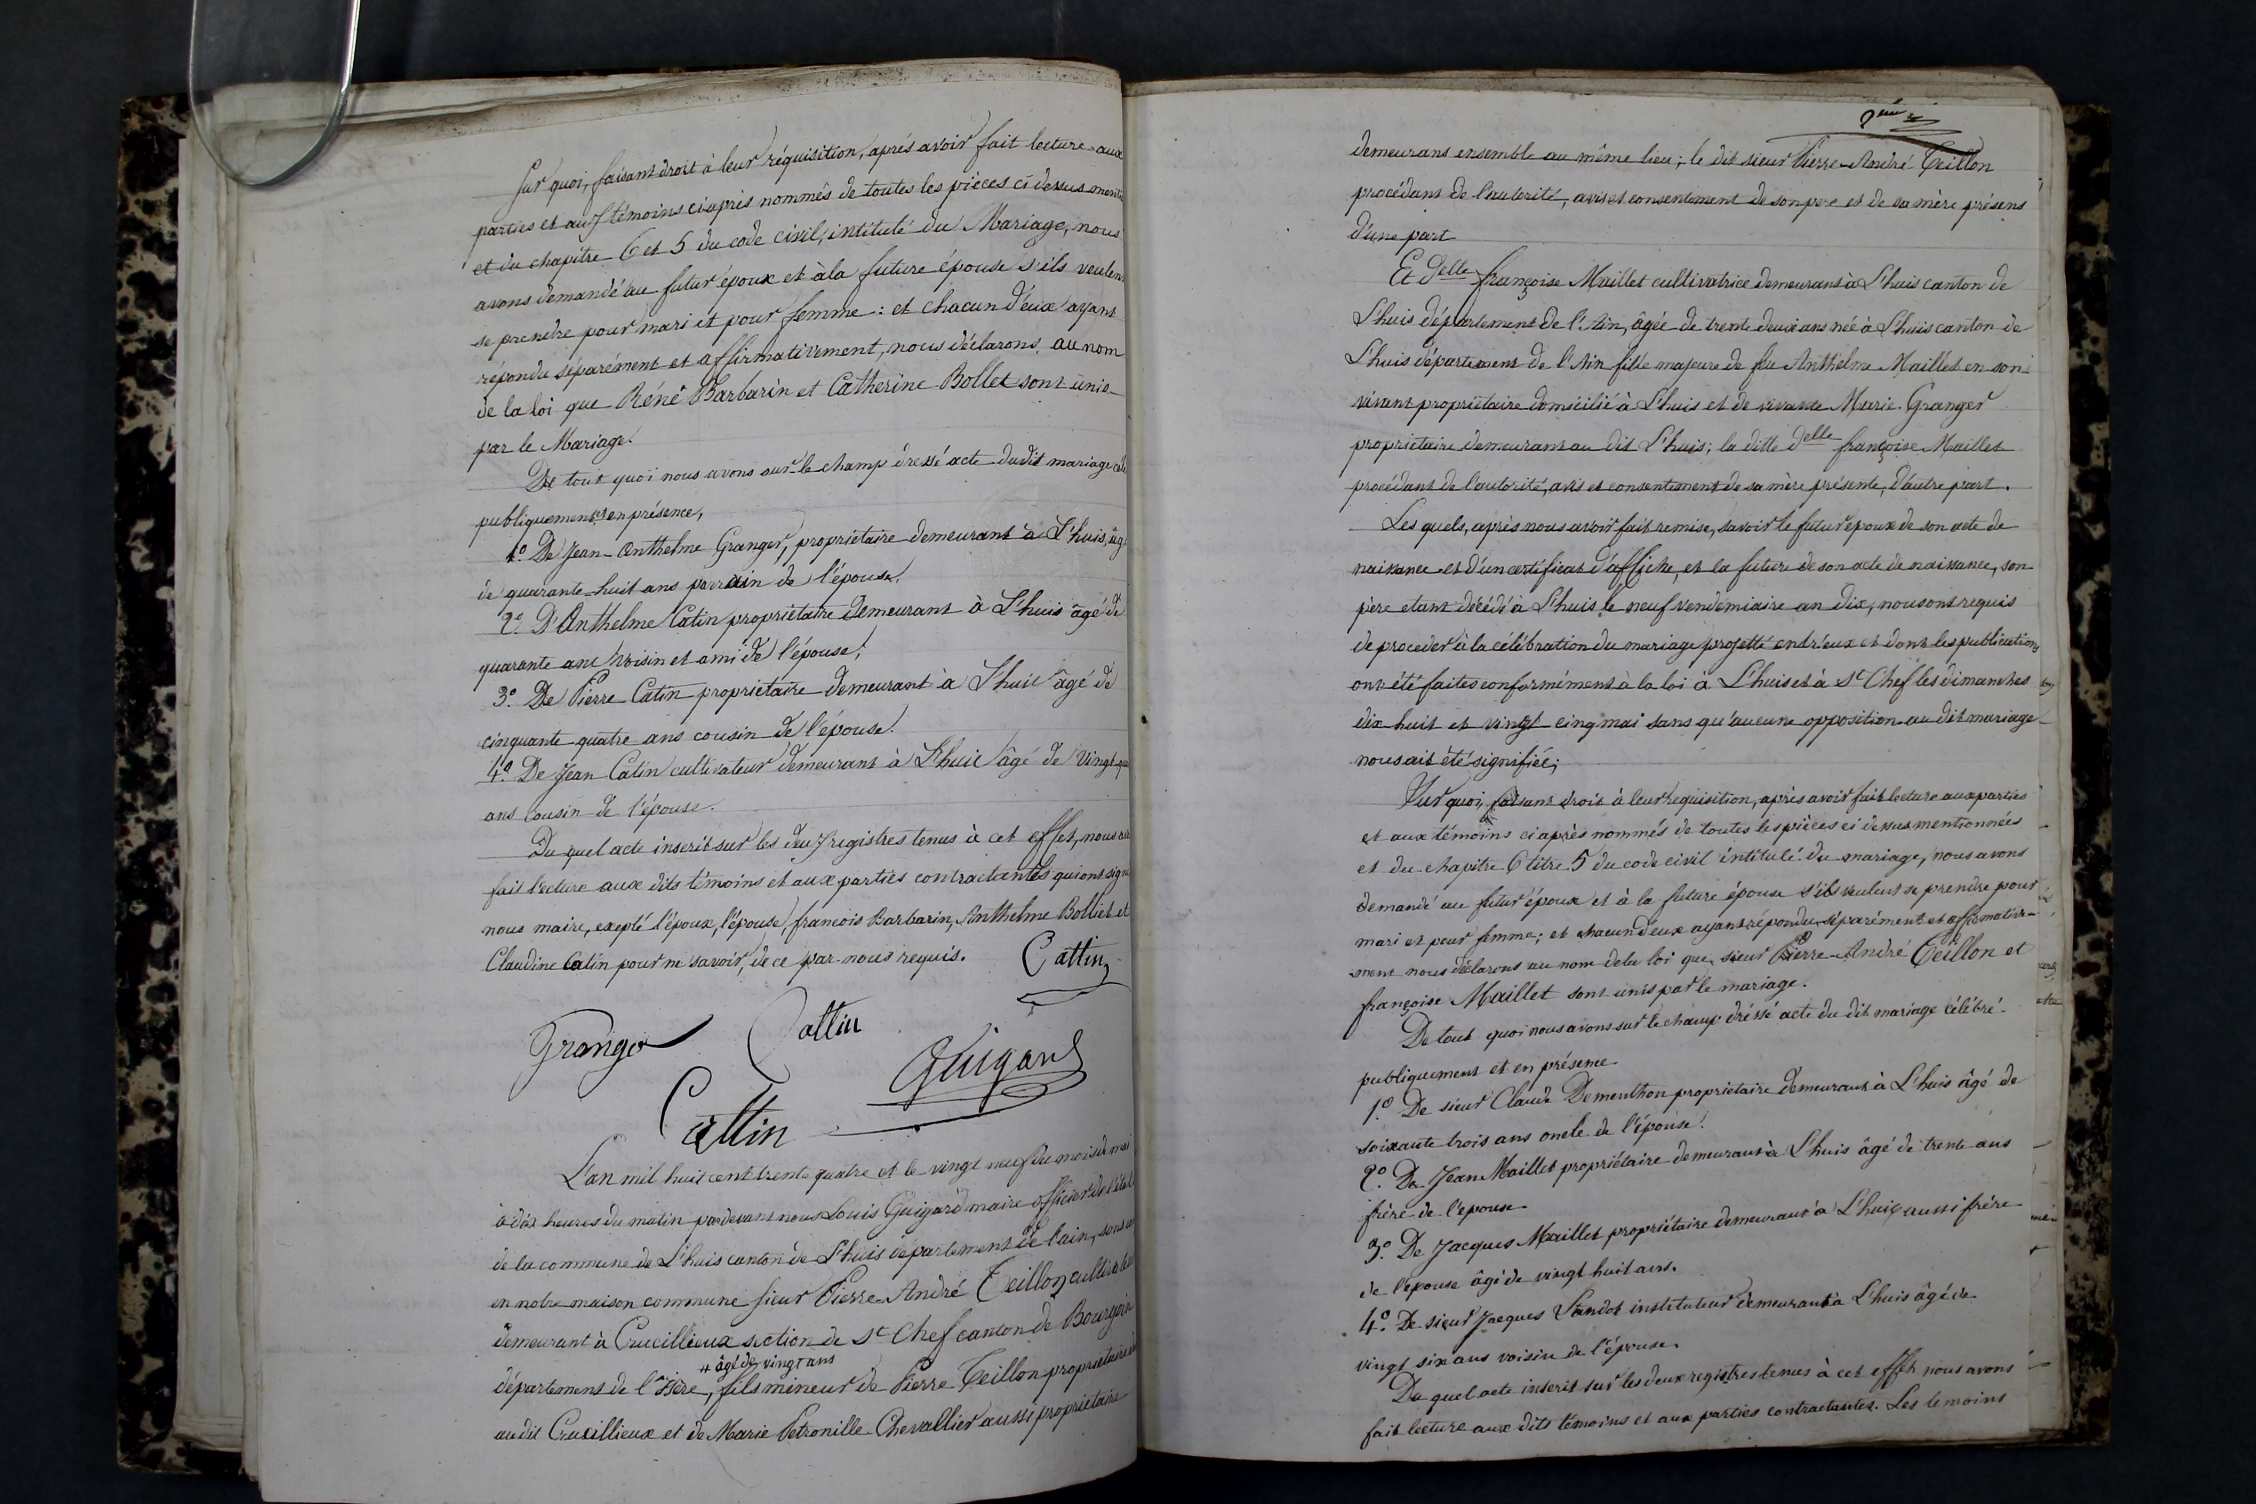 Sur quoi, faisant droit à leur réquisition, après avoir fait lecture aux
parties et aux témoins ci après nommés de toutes les pièces ci dessus menti
et du chapitre 6 et 5 du code civil, intitulé du Mariage, nous
avons demandé au futur époux et à la future épouse s'ils veulen
se prendre pour mari et pour femme : et chacun d'eux ayant
répondu séparément et affirmativement, nous déclarons, au nom
de la loi que Réné Barbarin et Catherine Bollet sont unis
par le Mariage.
De tout quoi nous avons sur le champ dressé acte dudit mariage
publiquement en présence,
1º. De Jean-Anthelme Granger, propriétaire demeurant à L'huis, âg
de quarante huit ans parrain de l'épouse.
2º. D'Anthelme Catin propriétaire demeurant à L'huis âgé de
quarante ans voisin et ami de l'épouse;
3º. De Pierre Catin propriétaire demeurant à L'huis âgé de
cinquante quatre ans cousin de l'épouse.
4º. De Jean Catin cultivateur demeurant à L'huis âgé de Vingt
ans cousin de l'épouse.
Du quel acte inscrit sur les deux registres tenus à cet effet, nous
fait lecture aux dits témoins et aux parties contractantes qui ont sign
nous maire, exepté l'époux, l'épouse, françois Barbarin, Anthelme Bolliet et
Claudine Catin pour ne savoir, de ce par nous requis. Cattin
Granger Cattin
Guigard
Cattin
L'an mil huit cent trente quatre et le vingt neuf du mois de mai
à dix heures du matin pardevant nous Louis Guigard maire officier de l'état
de la commune de L'huis canton de L'huis département de l'ain, sont
en notre maison commune sieur Pierre-André Teillon cultivateur
demeurant à Crucillieux section de St Chef canton de Bourgoin
# âgé de vingt ans
département de l'Isère, fils mineur de Pierre Teillon propriétaire
au dit Crucillieux et de Marie Petronille Chevallier aussi propriétaire
demeurans ensemble au même lieu; le dit sieur Pierre-André Teillon
procédant de l'autorité, avis et consentement de son père et de sa mère présens
d'une part
Et Delle françoise Maillet cultivatrice demeurant à L'huis canton de
L'huis département de l'Ain, âgée de trente deux ans née à L'huis canton de
L'huis département de l'Ain fille majeure de feu Anthelme Maillet en son
vivant propriétaire domicilié à L'huis et de vivante Marie Granger
propriétaire demeurant au dit L'huis; la ditte delle françoise Maillet
procédant de l'autorité, avis et consentement de sa mère présente, d'autre part.
Les quels, après nous avoir fait remise, savoir le futur époux de son acte de
naissance et d'un certificat d'affiche, et la future de son acte de naissance, son
père etant décédé à L'huis le neuf vendemiaire an dix, nous ont requis
de proceder à la célébration du mariage projetté entr'eux et dont les publications
ont été faites conformément à la loi à L'huis et à St Chef les dimanches
dix huit et vingt cinq mai sans qu'aucune opposition au dit mariage
nous ait été signifiée;
Sur quoi, faisant droit à leur requisition, après avoir fait lecture aux parties
et aux témoins ci après nommés de toutes les pièces ci dessus mentionnées
et du chapitre 6 titre 5 du code civil intitulé du mariage, nous avons
demandé au futur époux et à la future épouse s'ils veulent se prendre pour
mari et pour femme; et chacun d'eux ayant répondu séparément et affirmative-
ment nous déclarons au nom de la loi que sieur Pierre-André Teillon et
françoise Maillet sont unis par le mariage.
De tout quoi nous avons sur le champ dréssé acte du dit mariage célébré
publiquement et en présence
1º. De sieur Claude Dementhon propriétaire demeurant à L'huis âgé de
soixante trois ans oncle de l'épouse.
2º. De Jean Maillet propriétaire demeurant à L'huis âgé de trente ans
frère de l'epouse
3º. De Jacques Maillet propriétaire demeurant à L'huis aussi frère
de l'épouse âgé de vingt huit ans.
4º. De sieur Jacques Sandot instituteur demeurant à L'huis âgé de
vingt six ans voisin de l'épouse.
Du quel acte inscrit sur les deux registres tenus à cet effet nous avons
fait lecture aux dits témoins et aux parties contractantes. Les temoins